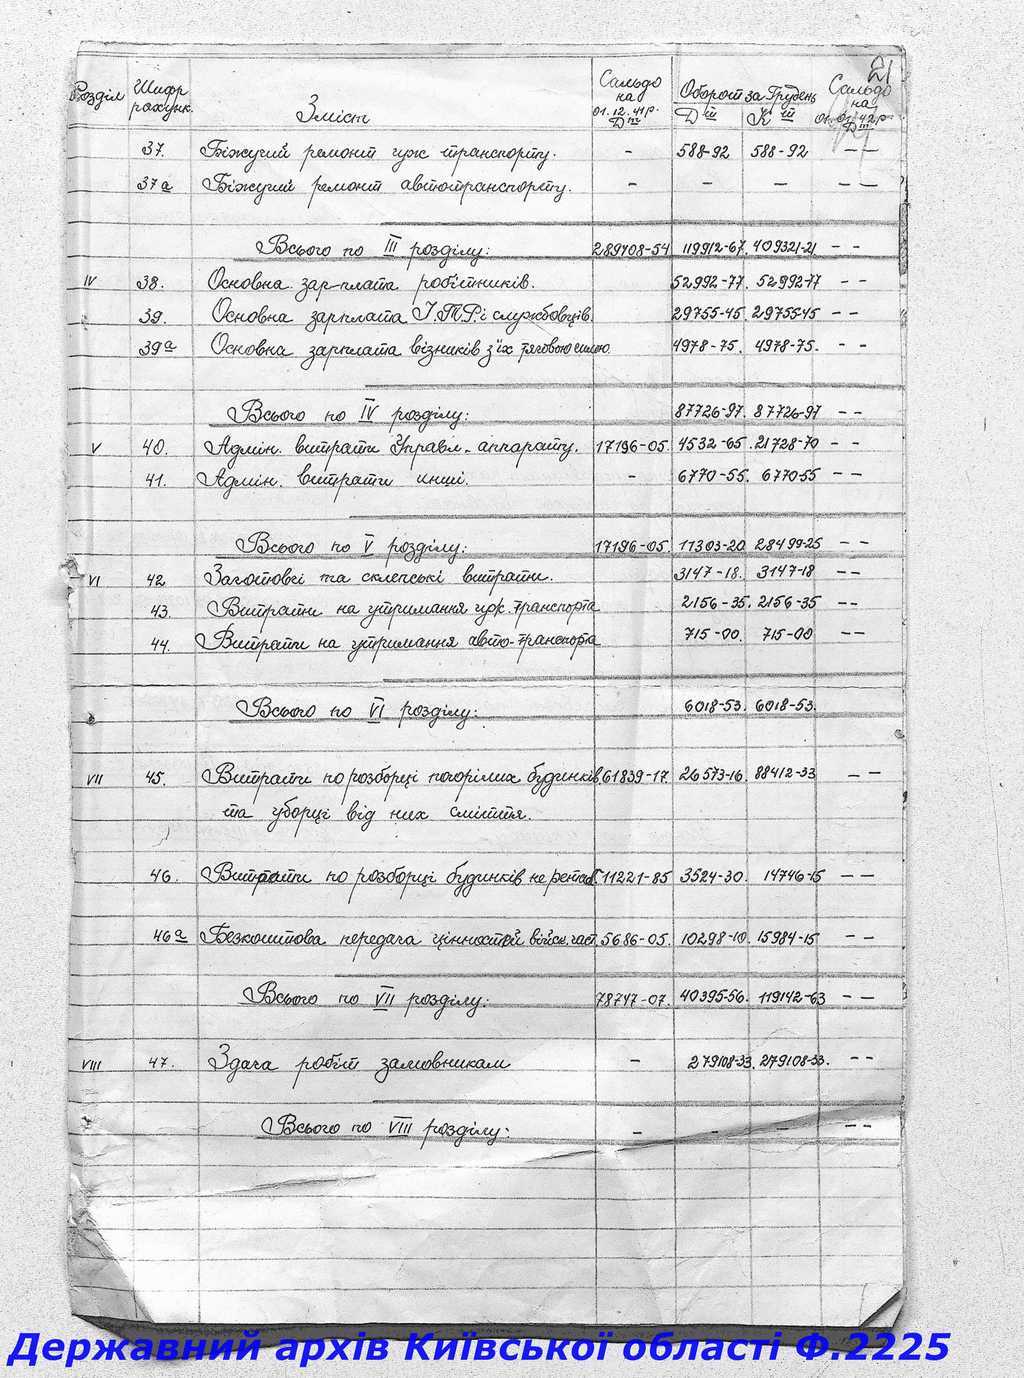 21
Розділ Шифр рахунк. Зміст Сальдо на 01.12.41р. Дт Оборот за Грудень Дт Кт Сальдо на 01.01.42р. Дт
37. Біжучий ремонт гуж транспорту. - 588-92 588-92 - -
37а Біжучий ремонт автотранспорту. - - - - -
Всього по III розділу: 289408-54 119912-67. 409321-21 - -
IV 38. Основна зар-плата робітників. 52992-77. 52992-77 - -
39. Основна зарплата І.Т.Р. і службовців. 29755-45. 29755-45 - -
39а Основна зарплата візників з їх тяговою силою. 4978-75. 4978-75. - -
Всього по IV розділу: 87726-97. 87726-97 - -
V 40. Адмін. витрати Управл. аппарату. 17196-05. 4532-65. 21728-70 - -
41. Адмін. витрати инші. - 6770-55. 6770-55 - -
Всього по V розділу: 17196-05. 11303-20. 28499-25 - -
VI 42. Заготовчі та склепські витрати. 3147-18. 3147-18 - -
43. Витрати на утримання гуж. транспорта 2156-35. 2156-35 - -
44. Витрати на утримання авто-транспорта 715-00. 715-00 - -
Всього по VI розділу: 6018-53. 6018-53.
VII 45. Витрати по розборці погорілих будинків 61839-17. 26573-16. 88412-33 - -
та уборці від них сміття.
46. Витрати по розборці будинків не рентаб. 11221-85 3524-30. 14746-15 - -
46а Безкоштова передача цінностей військ. част. 5686-05. 10298-10. 15984-15 - -
Всього по VII розділу: 78747-07. 40395-56. 119142-63 - -
VIII 47. Здача робіт замовникам - 279108-33. 279108-33. - -
Всього по VIII розділу: - - - - -
Державний архів Київської області Ф.2225